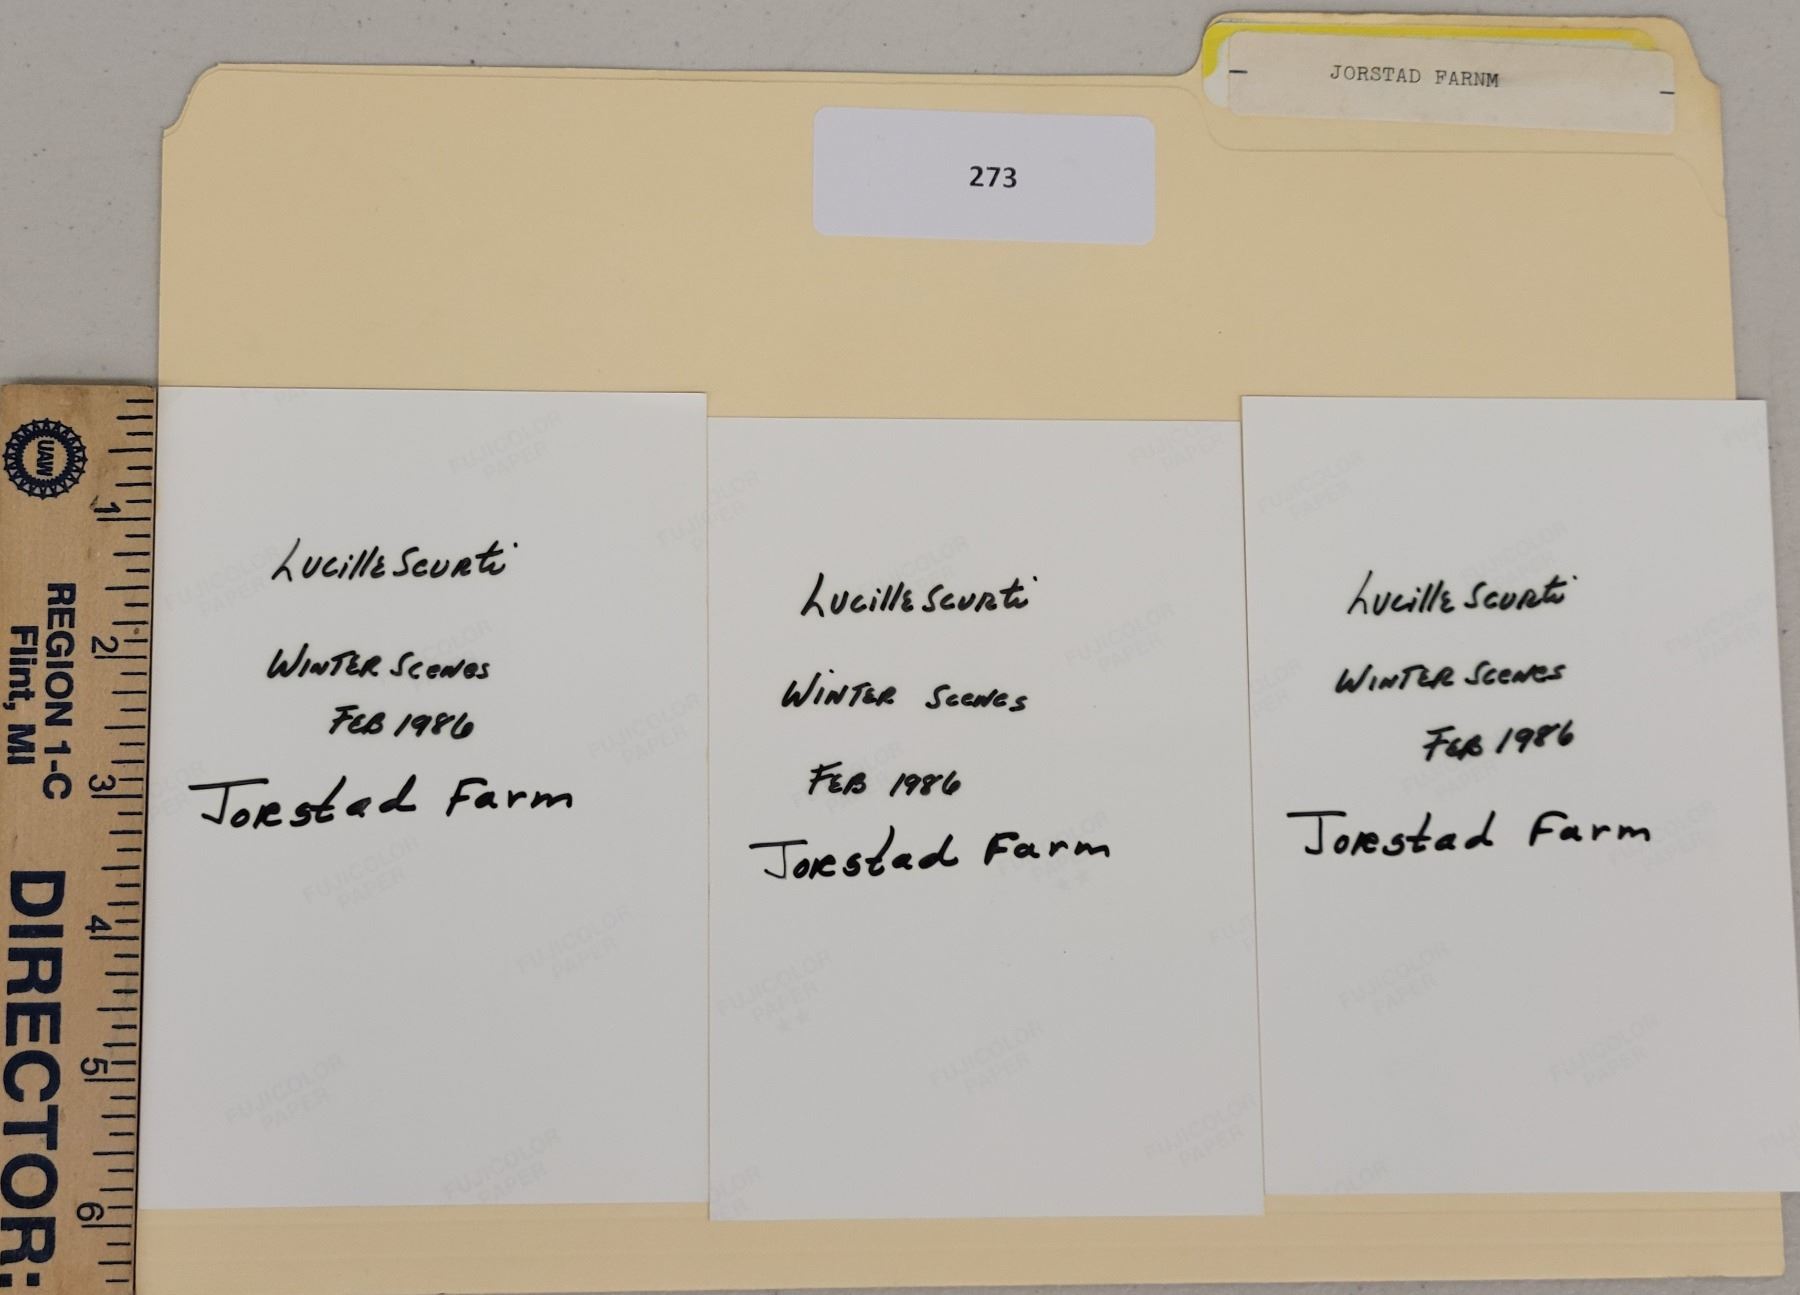 JORSTAD FARNM
273
Lucille Scurti
Winter Scenes
Feb 1986
Jorstad Farm
Lucille Scurti
Winter Scenes
Feb 1986
Jorstad Farm
Lucille Scurti
Winter Scenes
Feb 1986
Jorstad Farm
UAW
REGION 1-C
Flint, MI
DIRECTOR:
1
2
3
4
5
6
FUJICOLOR
PAPER